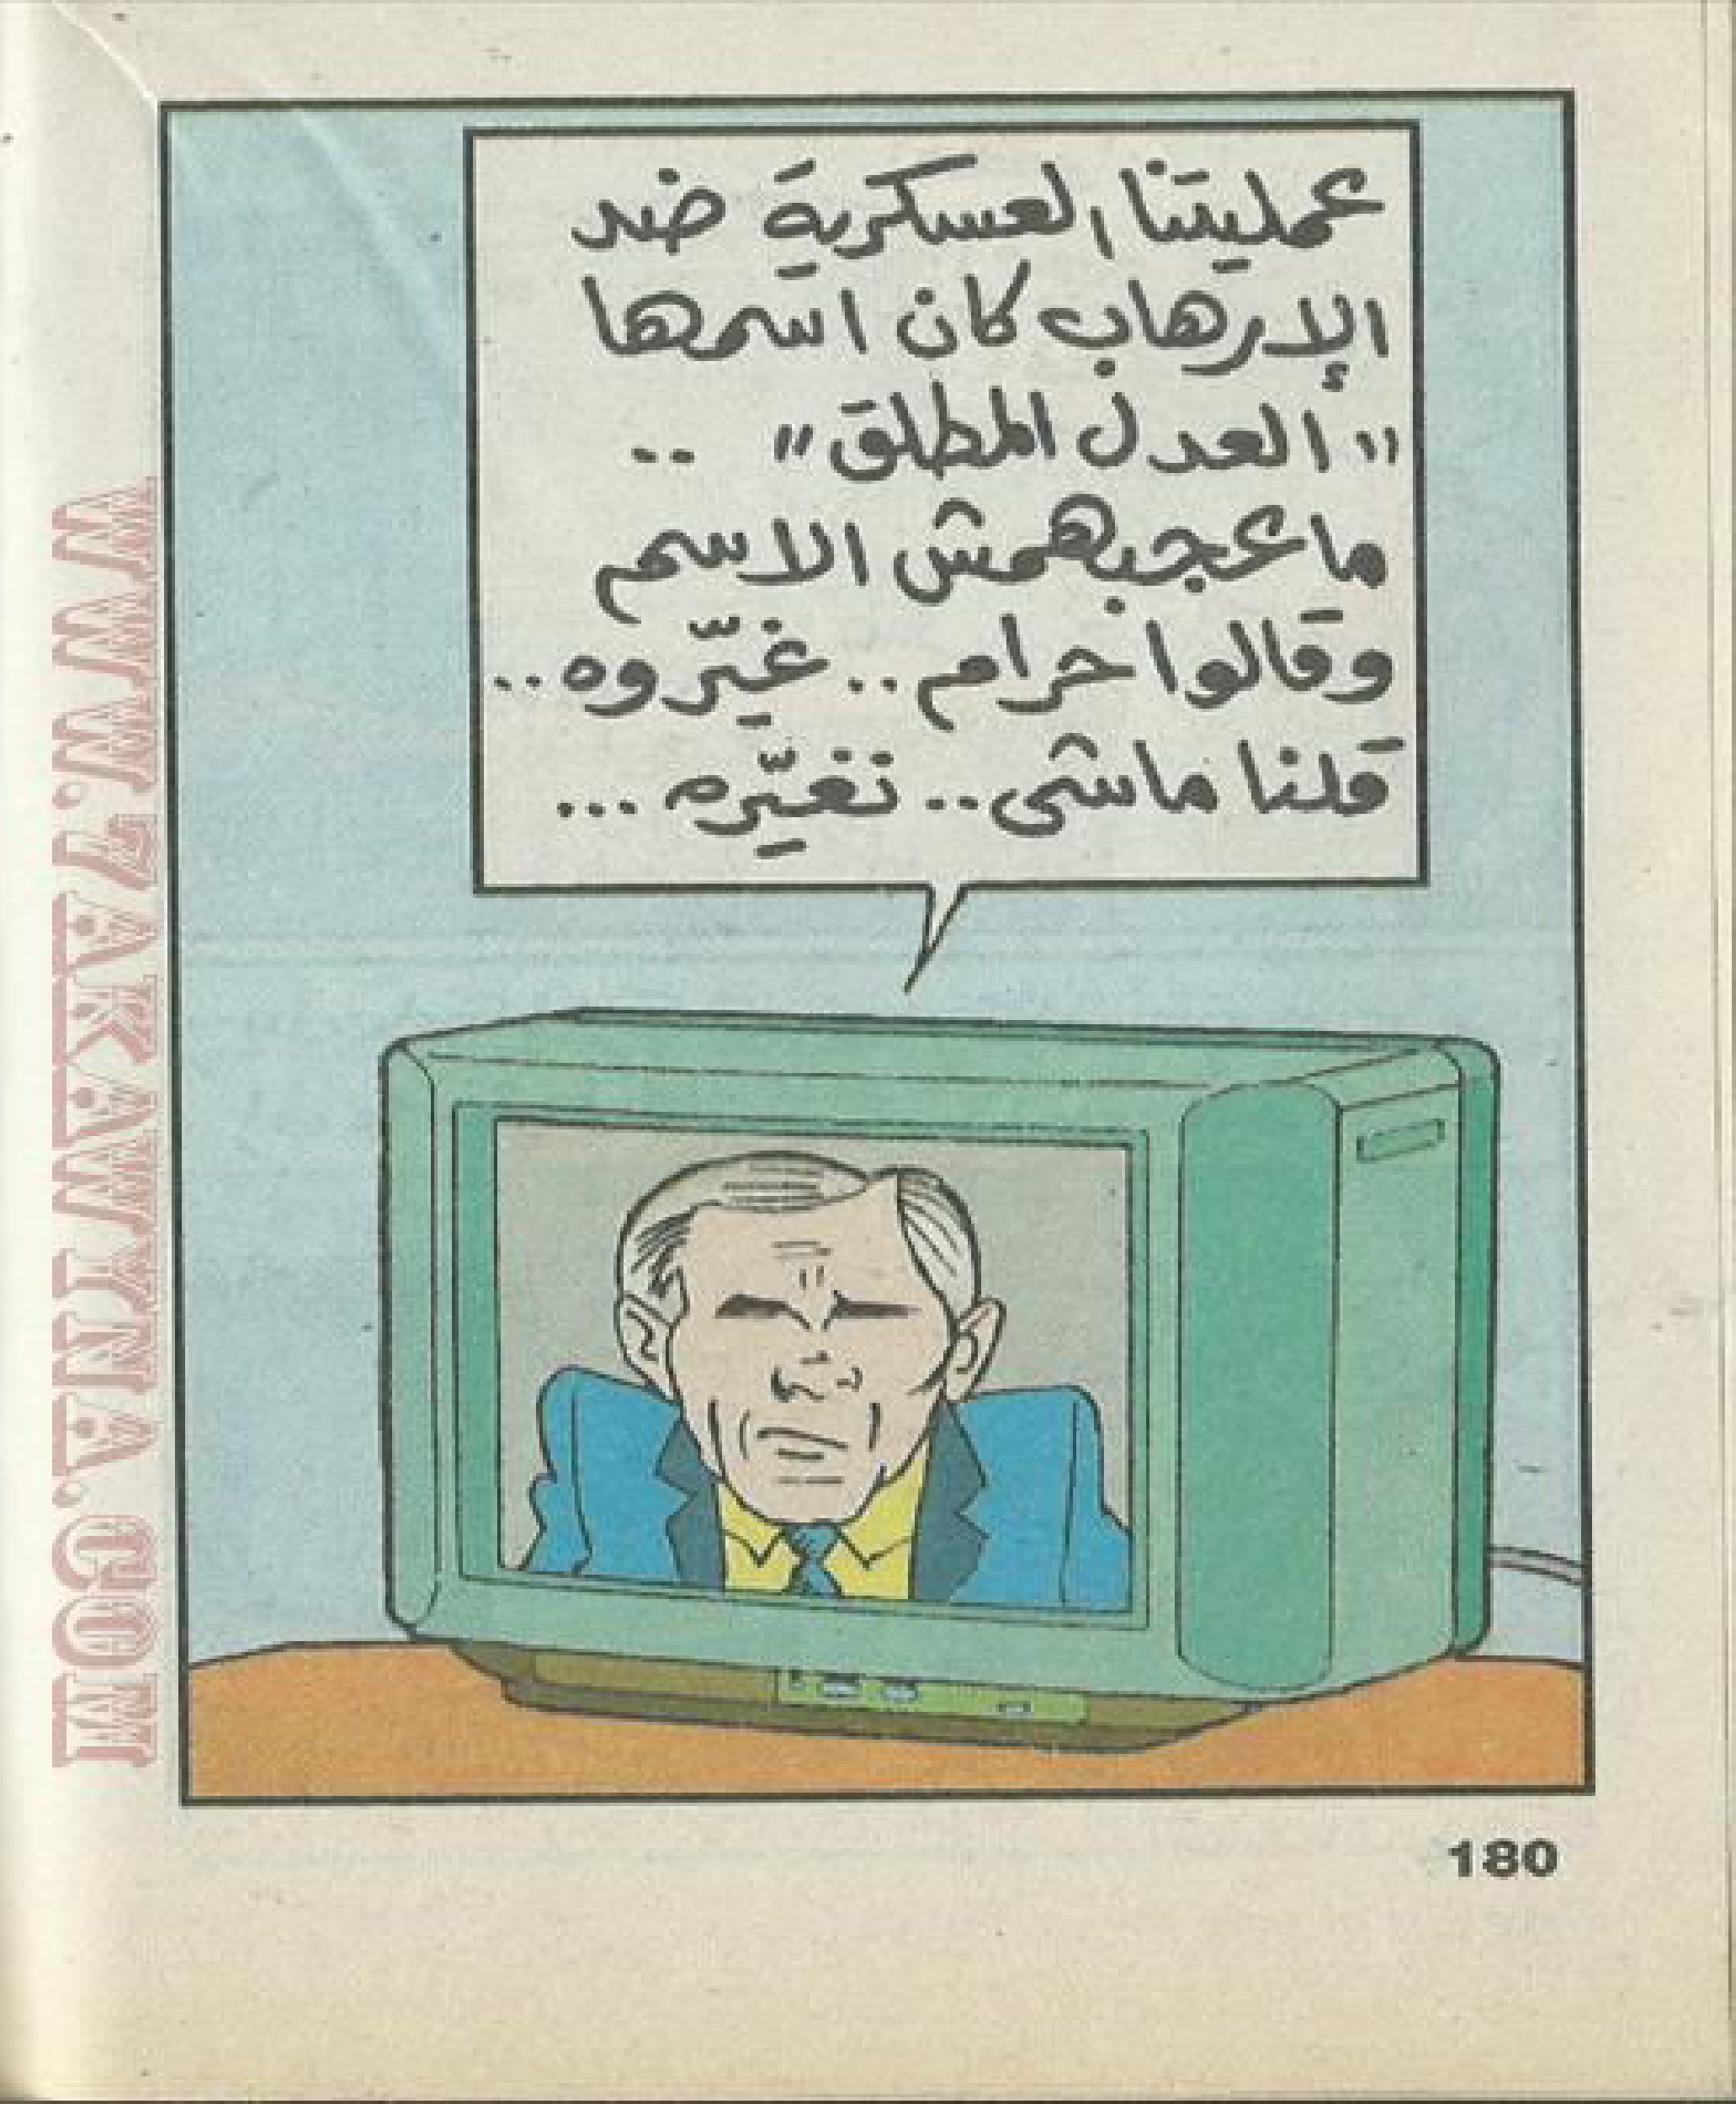 عمليتنا العسكرية ضد
الإرهاب كان اسمها
"العدل المطلق" ..
ماعجبهمش الاسم
وقالوا حرام .. غيّروه ..
قلنا ماشى .. نغيّره ...
180
WWW.ZAKAWYNA.COM